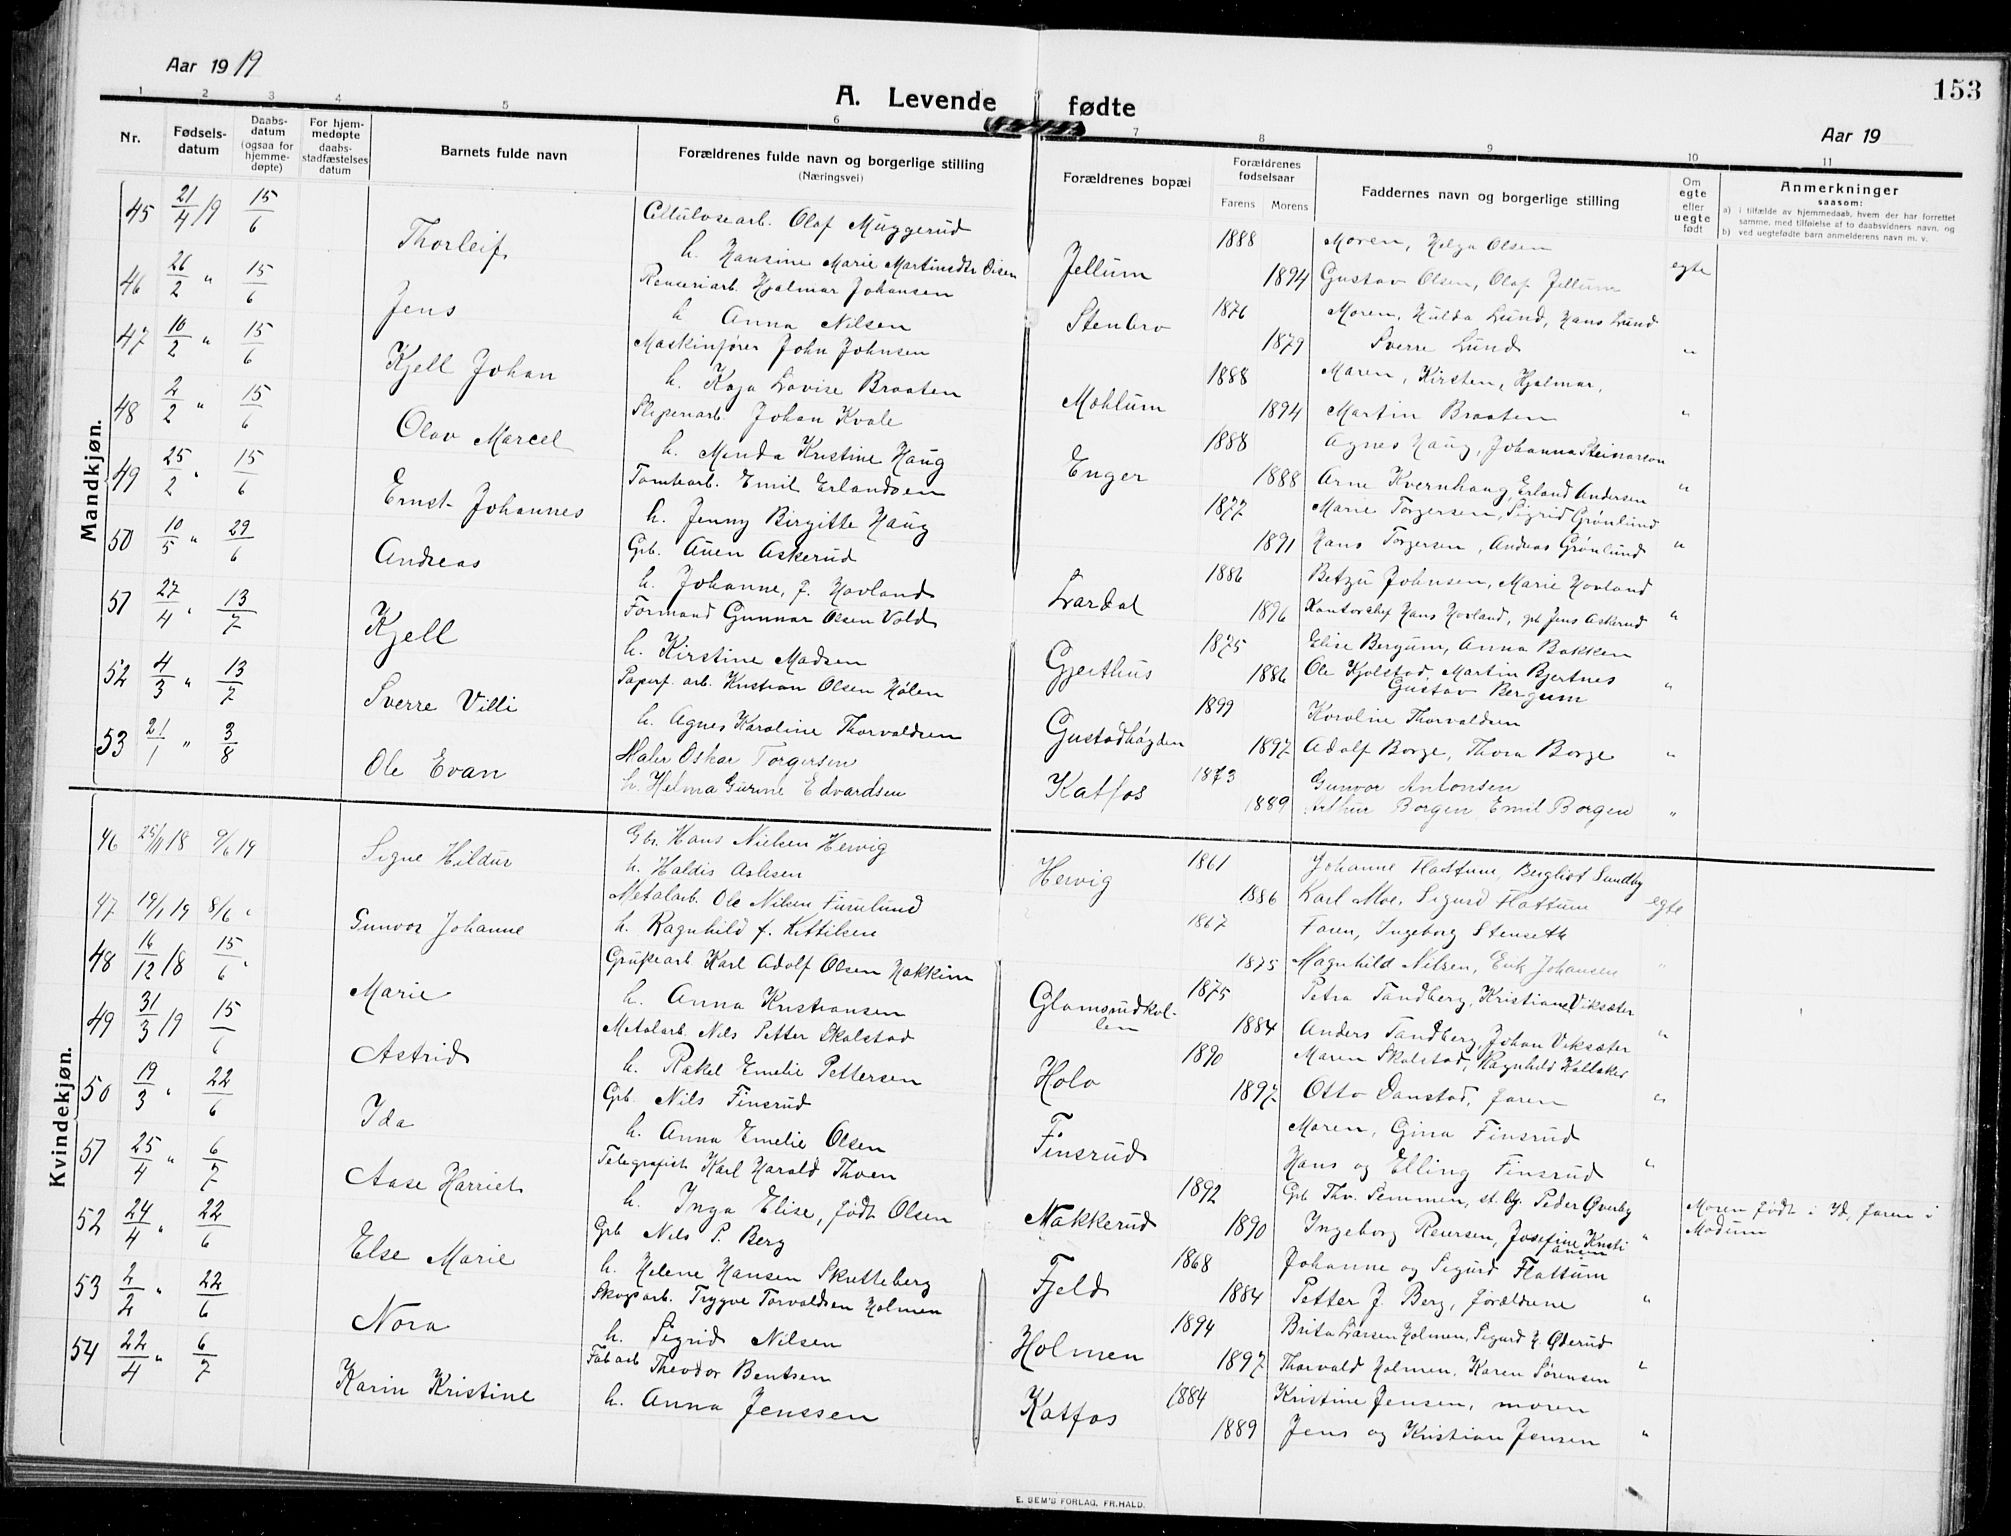 153
Aar 1919
A. Levende fødte
Aar 19
1 2 3 4 5 6 7 8 9 10 11
Nr.
Fødsels-
datum
Daabs-
datum
(ogsaa for
hjemme-
døpte)
For hjem-
medøpte
daabs-
stadfæstelses
datum
Barnets fulde navn
Forældrenes fulde navn og borgerlige stilling
(Næringsvei)
Forældrenes bopæl
Forældrenes
fødselsaar
Farens Morens
Faddernes navn og borgerlige stilling
Om
egte
eller
uegte
født
Anmerkninger
saasom:
a) i tilfælde av hjemmedaab, hvem der har forrettet
samme, med tilføielse af to daabsvidners navn, og
b) ved uegtefødte barn anmelderens navn m. v.
Mandkjøn.
45 21/4 19 15/6 Thorleif Cellulosearb. Olaf Muggerud Jellum 1888 Moren, Helga Olsen egte
h. Hansine Marie Martinsdtr Oisen 1894 Gustav Olsen, Olaf Jellum
46 26/2 " 15/6 Jens Renseriarb. Hjalmar Johansen Stenbro 1876 Moren, Hulda Lund, Hans Lund
h Anna Nilsen 1879 Sverre Lund "
47 10/2 " 15/6 Kjell Johan Maskinfører John Johnsen Mohlum 1888 Maren, Kirsten, Hjalmar,
h. Kaja Lovise Braaten 1894 Martin Braaten "
48 2/2 " 15/6 Olav Marcel Sliperiarb. Johan Kvale Enger 1888 Agnes Haug, Johanna Steinarson
h. Menda Kristine Haug 1888 Arne Kvernhaug, Erland Andersen "
49 25/2 " 15/6 Ernst Johannes Tomtearb. Emil Erlandsen 1877 Marie Torgersen, Sigrid Grønlund
h. Jenny Birgitte Haug 1891 Hans Torgersen, Andreas Grønlund "
50 10/5 " 29/6 Andreas Grb. Auen Askerud Lardal 1886 Betzy Johnsen, Marie Hovland
h. Johanne, f. Hovland 1896 Kontorchef Hans Hovland, gb Jens Askerud "
51 27/4 " 13/7 Kjell Formand Gunnar Olsen Vold Gjethus 1875 Elise Bergum, Anna Bakken
h. Kirstine Madsen 1886 Ole Kjolstad, Martin Bjertnes "
Gustav Bergum
52 4/3 " 13/7 Sverre Villi Papirf. arb. Kristian Olsen Hølen Gustadhøgden 1899 Karoline Thorvaldsen
h. Agnes Karoline Thorvaldsen 1897 Adolf Borge, Thora Borge "
53 21/1 " 3/8 Ole Evan Maler Oskar Torgersen Katfos 1873 Gunvor Antonsen
h. Helma Gurine Edvardsen 1889 Arthur Borgen Emil Borgen "
Kvindekjøn.
46 25/11 18 9/6 19 Signe Hildur Gbr. Hans Nielsen Hervig Hervig 1861 Johanne Flattum, Bergliot Sundby
h. Haldis Aslesen 1886 Karl Moe, Sigurd Flattum egte
47 19/1 19 8/6 " Gunvor Johanne Metalarb. Ole Nilsen Furulund 1867 Faren, Ingeborg Stenseth
h. Ragnhild f. Kittilsen 1875 Magnhild Nilsen, Erik Johansen "
48 16/12 18 15/6 " Marie Grubearb Karl Adolf Olsen Hakkim Glomsrudkol-
len 1875 Petra Tandberg, Kristiane Viksæter
h. Anna Kristiansen 1884 Anders Tandberg, Johan Viksæter "
49 31/3 19 15/6 Astrid Metalarb. Nils Petter Skolstad Holo 1890 Maren Skolstad, Ragnhild Kollaker
h. Rakel Emelie Pettersen 1897 Otto Danstad, faren "
50 19/3 " 22/6 Ida Grb. Nils Finsrud Finsrud Moren, Gina Finsrud
h. Anna Emelie Olsen Hans og Elling Finsrud "
51 25/4 " 6/7 Aase Harriet Telegrafist Karl Harald Thoen Nakkerud 1892 Grb Thv. Semmen, st. Peder Øverby Moren født i Id, faren i
h. Inga Elise, født Olsen 1890 Ingeborg Reiersen, Josefine Kristi
ansen " Modum
52 24/4 " 22/6 Else Marie Grb Nils P. Berg Fjeld 1868 Johanne og Sigurd Flattum
h. Helene Hansen Skutteberg 1884 Petter J. Berg, forældrene "
53 2/2 " 22/6 Nora Skogsarb. Trygve Torvaldsen Holmen Holmen 1894 Brita Larsen Holmen, Sigurd H. Øderud
h. Sigrid Nilsen 1897 Thorvald Holmen, Karen Sørensen "
54 22/4 " 6/7 Karin Kristine Fabarb Theodor Bentsen Katfos 1884 Kristine Jensen, moren
h. Anna Jenssen 1889 Jens og Kristian Jensen "
E. SEM'S FORLAG, FR.HALD.